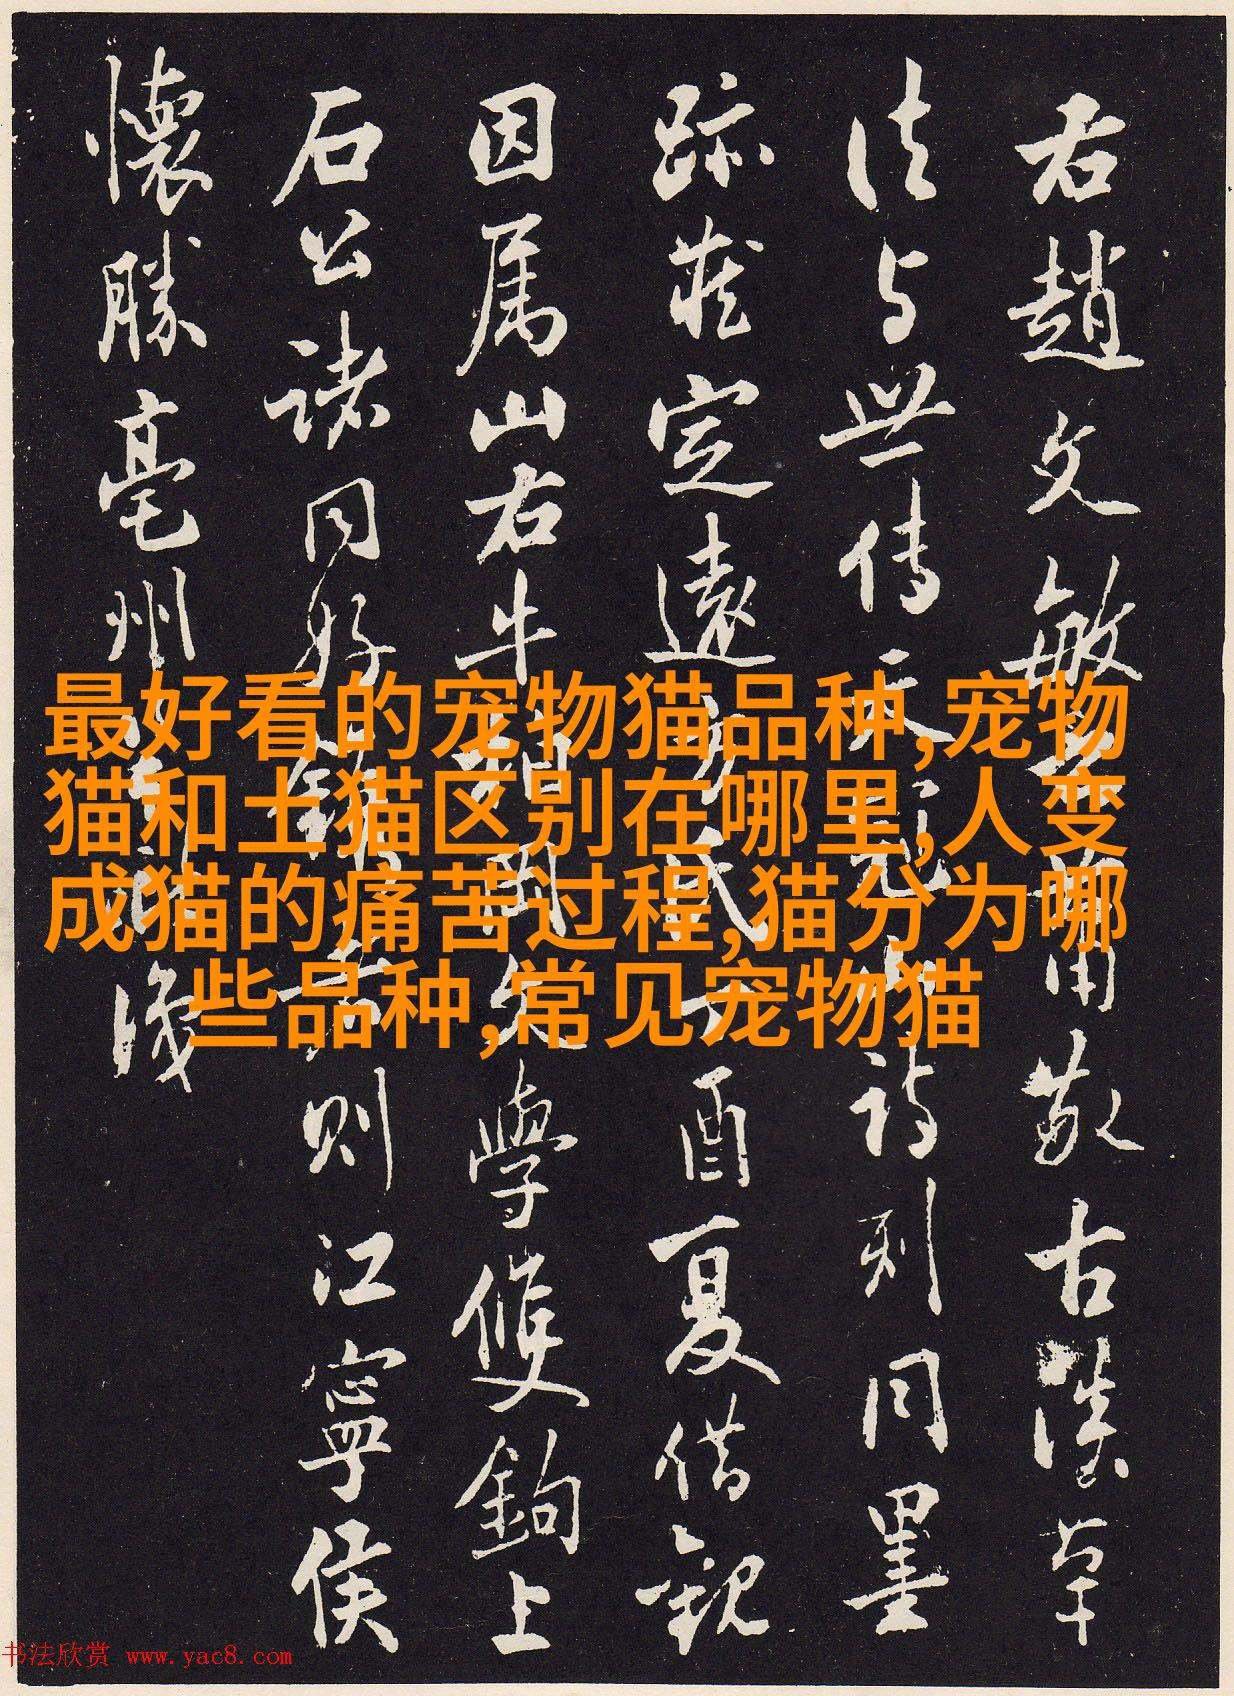 右趙文敏 敬古 草
法与世傳天冠山詩刻同墨
跡藏定遠方氏丁酉夏借觀
因属山右牛 文學 鉤上
石公諸同好 則江寧侯
懷勝亳州
最好看的宠物猫品种,宠物
猫和土猫区别在哪里,人变
成猫的痛苦过程,猫分为哪
些品种,常见宠物猫
书法欣赏 www.yac8.com